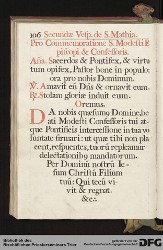 106 Secundæ Vesp. de S. Mathia.
Pro Commemoratione S. Modesti E
piscopi & Confessoris.
Aña. Sacerdos & Pontifex, & virtu
tum opifex, Pastor bone in populo:
ora pro nobis Dominum.
℣. Amavit eū Dñs & ornavit eum.
℟. Stolam gloriæ induit eum.
Oremus.
DA nobis quæsumus Domine, be
ati Modesti Confessoris tui at
que Pontificis intercessione ita tua ve
stigia
cent, respuentes, tuorū repleamur
delectationibȝ mandatorum.
Per Dominū nostrū Je-
sum Christū Filium
tuū: Qui tecū vi-
vit & regnat.
&c.
Bibliothek des
Bischöflichen Priesterseminars Trier
DFG